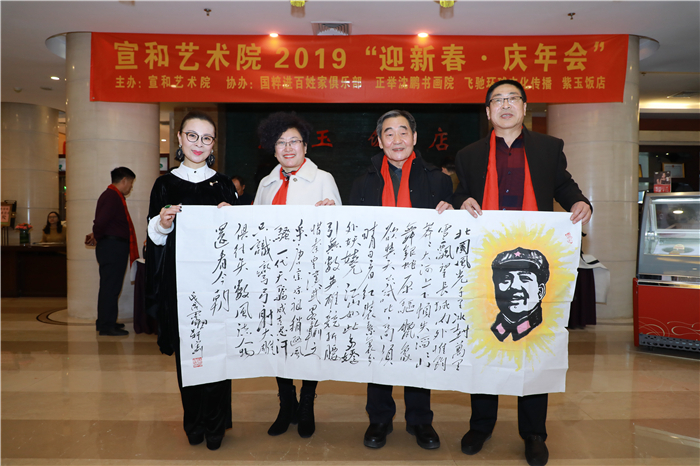 宣和艺术院 2019 “迎新春·庆年会”
主办：宣和艺术院 协办：国粹港百姓家俱乐部 正举 鹏书画院 飞驰环 文化传播 紫玉饭店
玉 饭 店
北国风光千里冰封万里
雪飘望长城内外惟余
莽莽大河上下顿失滔滔山
舞银蛇原驰蜡象
欲与天公试比高须
晴日看红装素裹分
外妖娆江山如此多娇
引无数英雄竞折腰
惜秦皇汉武略输文
采唐宗宋祖稍逊风
骚一代天骄成吉思汗
只识弯弓射大雕
俱往矣数风流人物
还看今朝